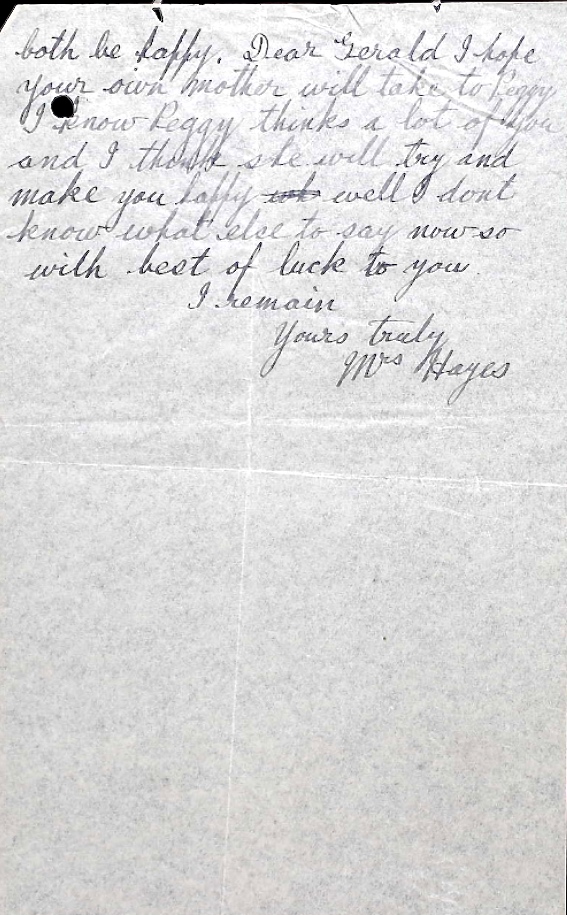 both be happy. Dear Gerald I hope
your own mother will take to Peggy
I know Peggy thinks a lot of you
and I think she will try and
make you happy well I dont
know what else to say now so
with best of luck to you.
I remain
Yours truly
Mrs Hayes